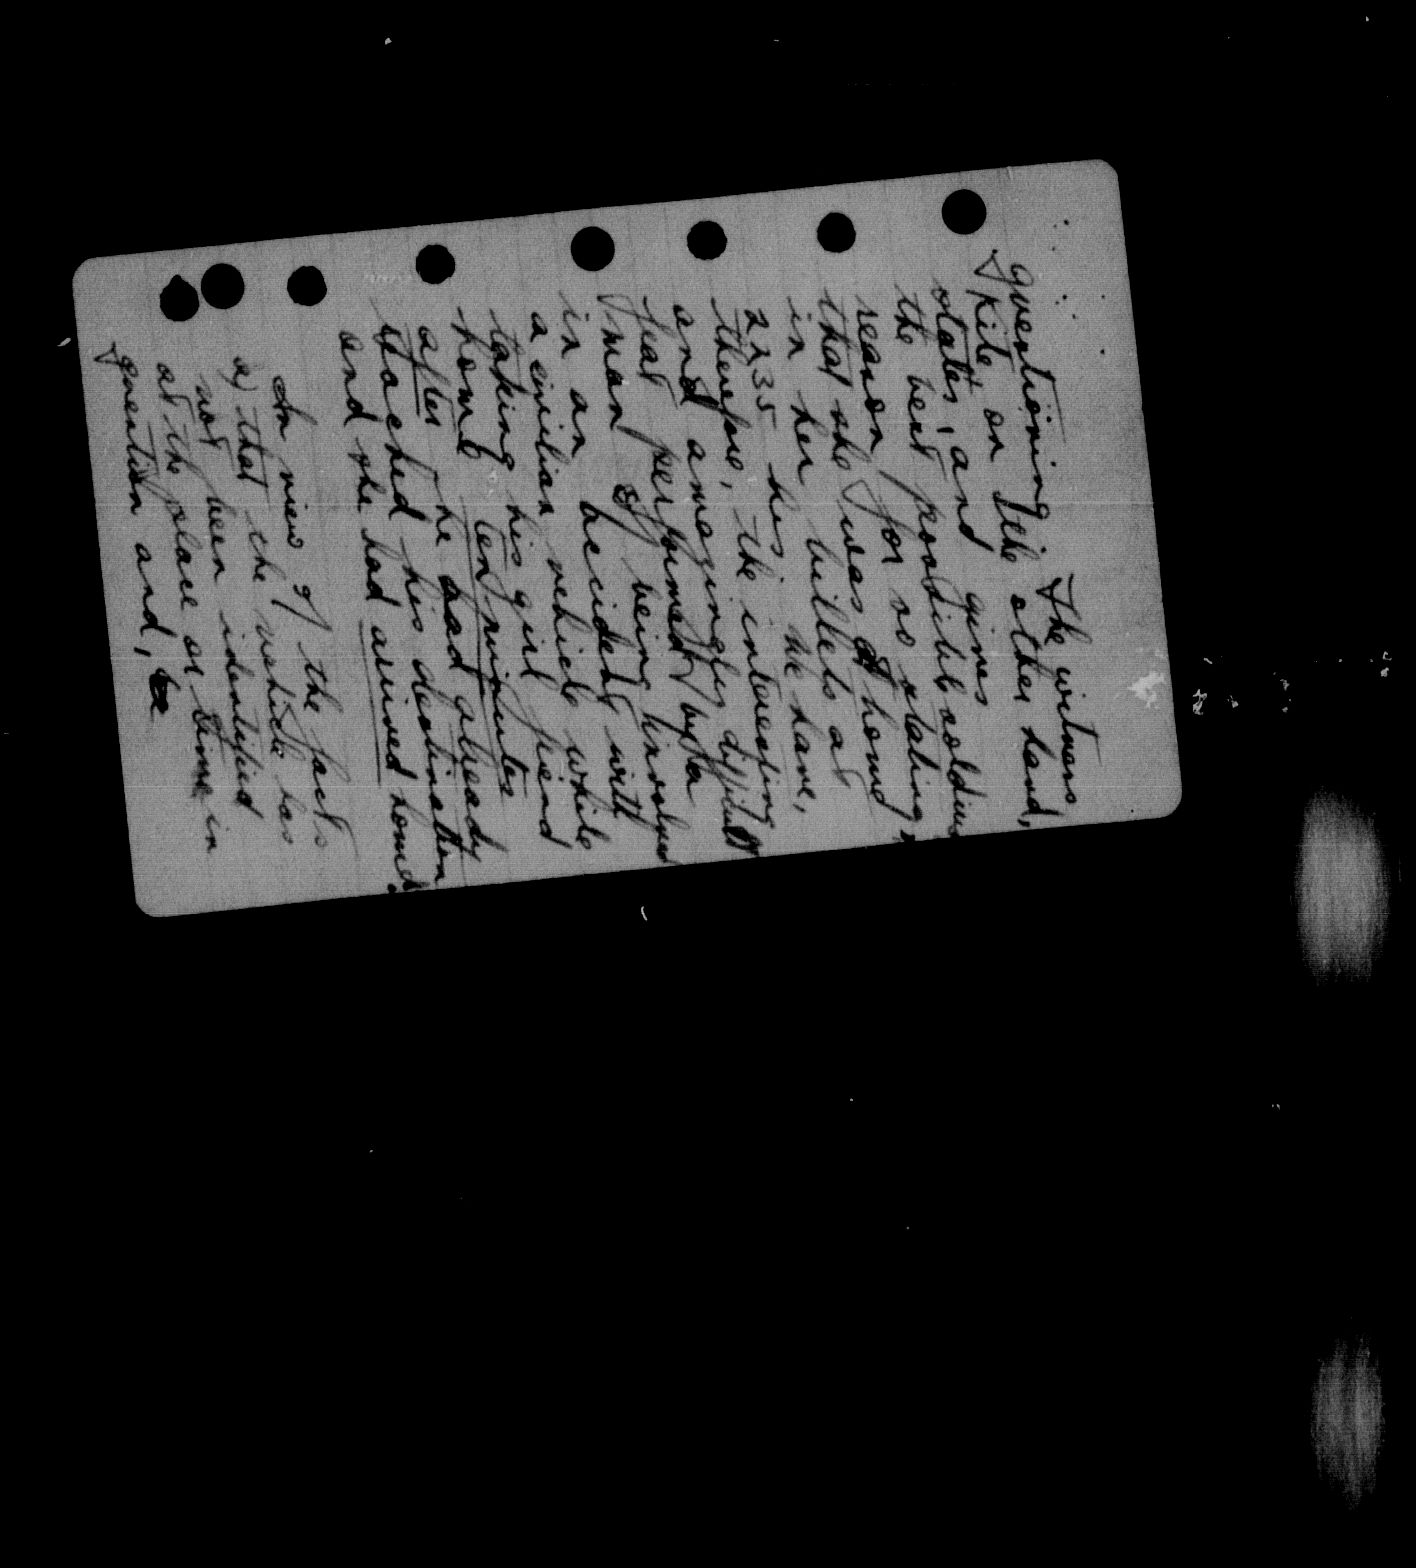 questioning. The witness
Kite on the other hand,
states, and gives
the best possible
reason for so stating,
that she was at home
in her billets at
2235 hrs. We have,
therefore, the interesting
and amazingly difficult
feat performed by a
man of being involved
in an accident with
a civilian vehicle while
taking his girl friend
home ten minutes
after he had already
reached his destination
and she had arrived home.
In view of the facts
a) that the vehicle has
not been identified
at the place or time in
question and,